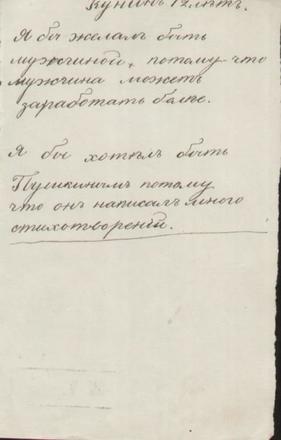 Кунинъ 12 лѣтъ.
Я бы желалъ быть
мужчиной, потому что
мужчина можетъ
заработать болѣе.
Я бы хотѣлъ быть
Пушкинымъ потому
что онъ написалъ много
стихотвореній.